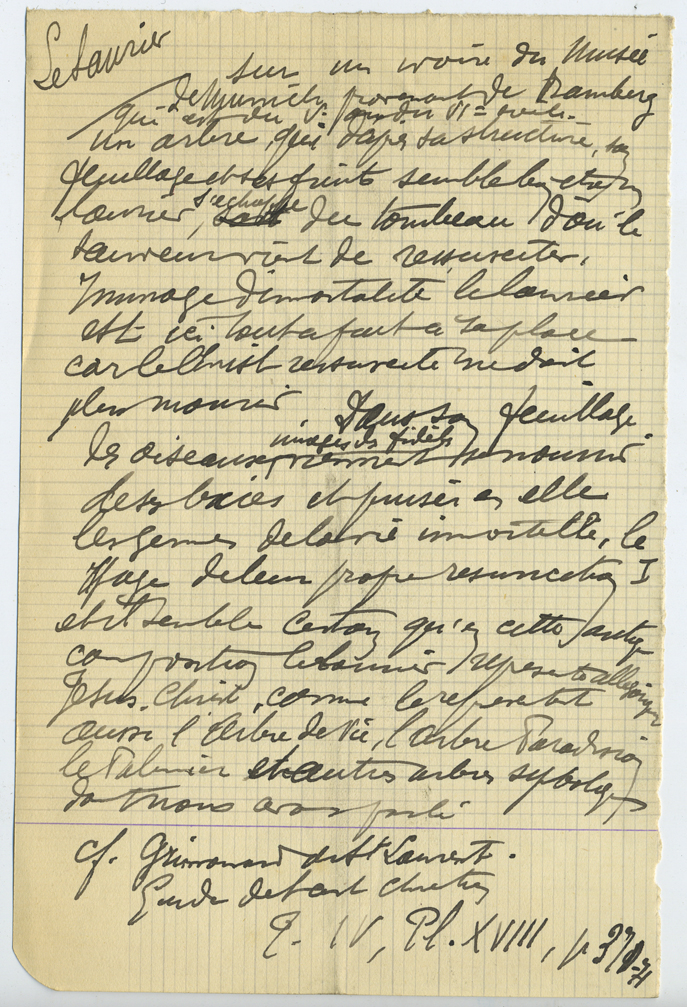 Le Laurier
Sur un ivoire du Musée
de Munich, provenant de Bamberg
qui est du V<sup>e</sup> ou du VI<sup>e</sup> siècle.
un arbre, qui d'après sa structure, son
feuillage et ses fruits semble bien être un
laurier, s'échappe du tombeau d'où le
Sauveur vient de ressusciter.
Image d'immortalité le laurier
est ici tout a fait a sa place
car le Christ ressuscité ne doit
plus mourir. Dans son feuillage
des oiseaux, images des fidèles viennent se nourrir
de ses baies et puiser en elle
les germes de la vie immortelle, le
gage de leur propre resurrection
et il semble certain qu'en cette antique
composition le laurier représente allégoriquement
Jésus-Christ, comme le représentent
aussi l'Arbre de Vie, l'arbre Paradision
le Palmier et autres arbres symboliques
dont nous avons parlé
cf. Grimouard de St Laurent.
Guide de l'art chrétien
T. IV, Pl. XVIII, p